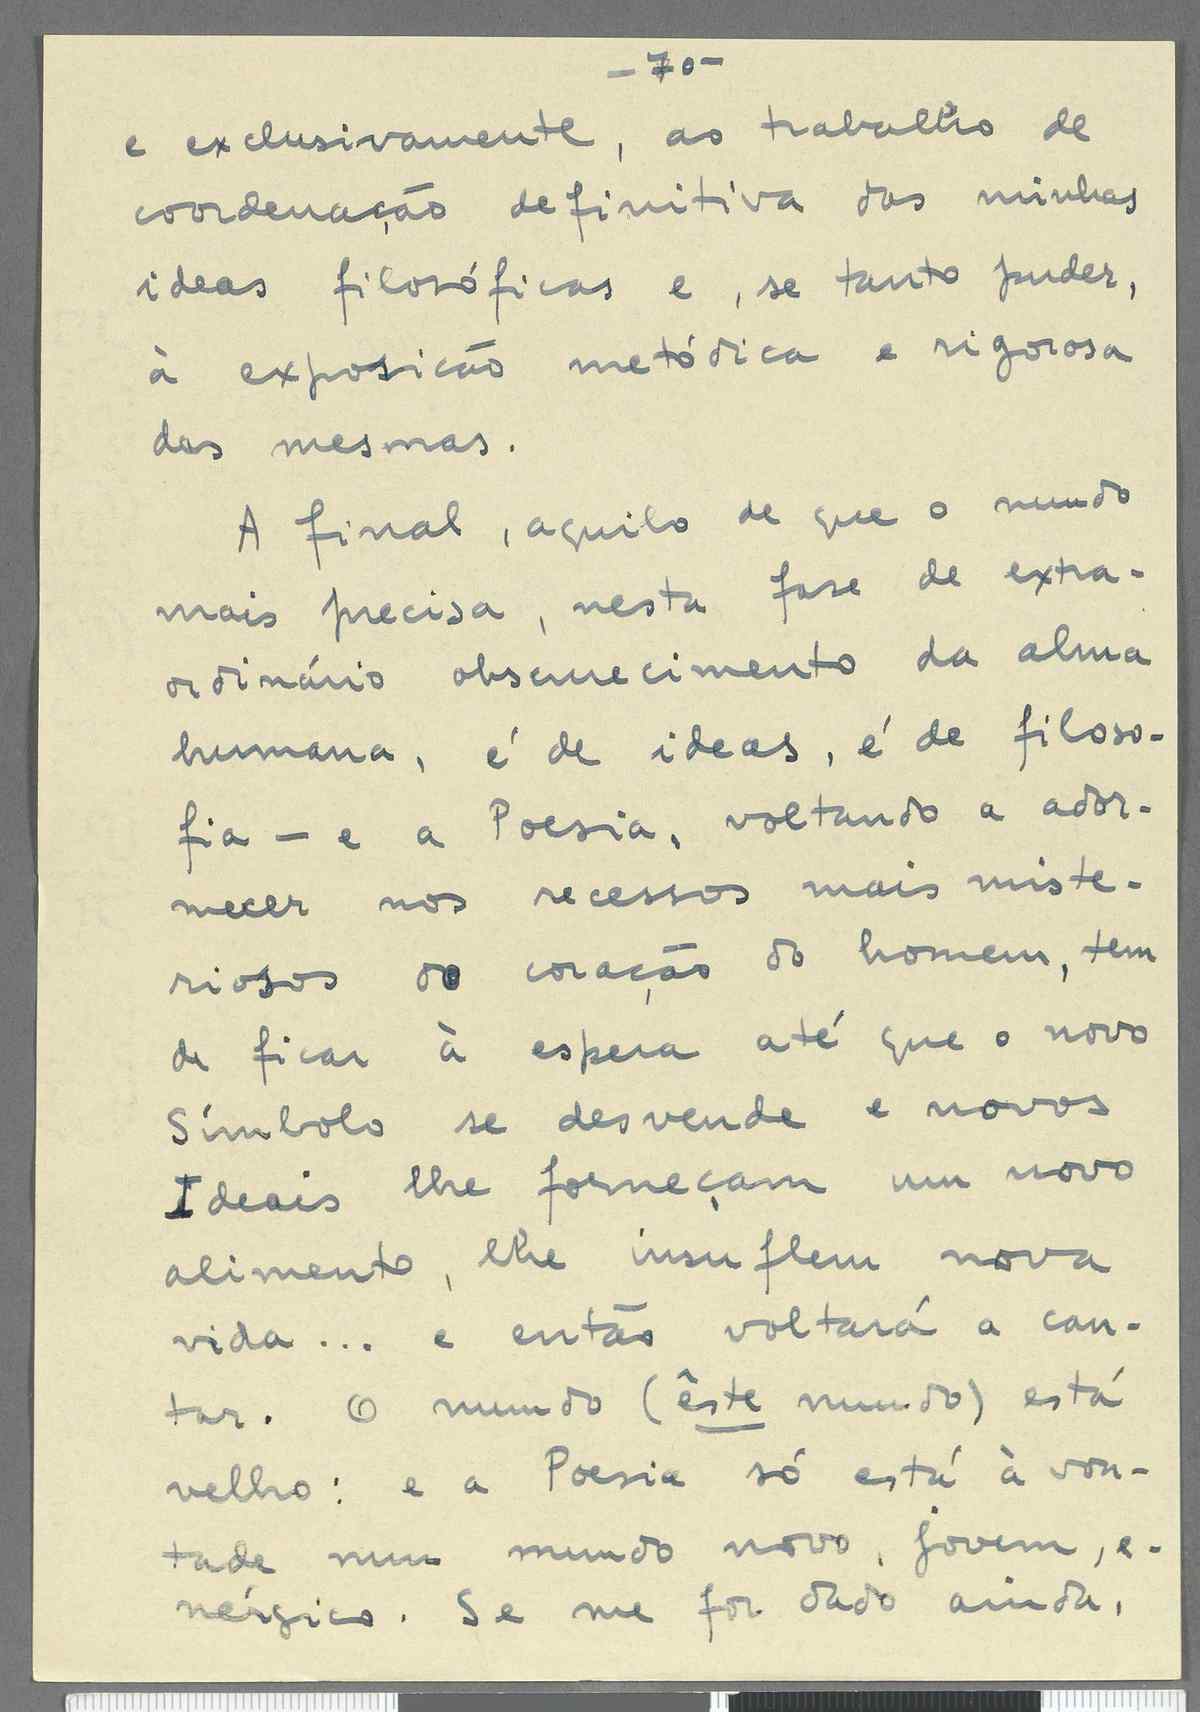 -70-
e exclusivamente, ao trabalho de
coordenação definitiva das minhas
ideas filosóficas e, se tanto puder,
à exposição metódica e rigorosa
das mesmas.
A final, aquilo de que o mundo
mais precisa, nesta fase de extra-
ordinário obscurecimento da alma
humana, é de ideas, é de filoso-
fia — e a Poesia, voltando a ador-
mecer nos recessos mais miste-
riosos do coração do homem, tem
de ficar à espera até que o novo
Símbolo se desvende e novos
Ideais lhe forneçam um novo
alimento, lhe insuflem nova
vida... e então voltará a can-
tar. O mundo (êste mundo) está
velho: e a Poesia só está à von-
tade num mundo novo, jovem, e-
nérgico. Se me for dado ainda,